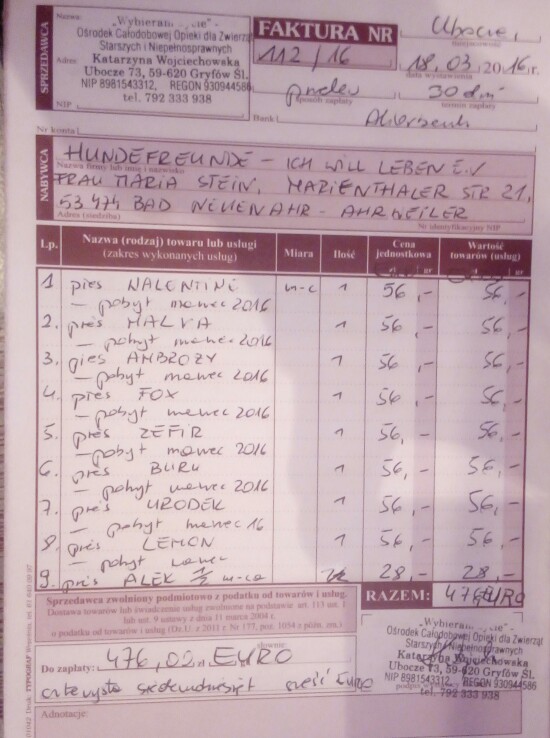 SPRZEDAWCA
Nazwa:
Ośrodek Całodobowej Opieki dla Zwierząt
Starszych i Niepełnosprawnych
Adres
Katarzyna Wojciechowska
Ubocze 73, 59-620 Gryfów Śl.
NIP 8981543312, REGON 930944586
tel. 792 333 938
NIP
FAKTURA NR
112/16
Ubocze,
miejscowość
18.03.2016r.
data wystawienia
przelew
sposób zapłaty
30 dni
termin zapłaty
Bank
Nr konta
NABYWCA
HUNDEFREUNDE - ICH WILL LEBEN E.V
Nazwa firmy lub imię i nazwisko
FRAU MARIA STEIN, MARIENTHALER STR 21,
53.474 BAD NEUENAHR - AHRWEILER
Adres (siedziba)
Nr identyfikacyjny NIP
Lp. Nazwa (rodzaj) towaru lub usługi Miara Ilość Cena Wartość
(zakres wykonanych usług) jednostkowa towarów (usług)
zł gr zł gr
1 pies WALENTINE m-c 1 56,- 56,-
- pobyt marzec 2016
2. pies MALVA 1 56,- 56,-
- pobyt marzec 2016
3. pies AMBROZY 1 56,- 56,-
- pobyt marzec 2016
4. pies FOX 1 56,- 56,-
- pobyt marzec 2016
5. pies ZEFIR 1 56,- 56,-
- pobyt marzec 2016
6. pies BURU 1 56,- 56,-
- pobyt marzec 2016
7. pies URODEK 1 56,- 56,-
- pobyt marzec 16
8. pies LEMON 1 56,- 56,-
- pobyt marzec
9. pies ALEK 1/2 m-ca 1/2 28,- 28,-
Sprzedawca zwolniony podmiotowo z podatku od towarów i usług.
Dostawa towarów lub świadczenie usług zwolnione na podstawie art. 113 ust. 1
lub ust. 9 ustawy z dnia 11 marca 2004 r.
o podatku od towarów i usług (Dz.U. z 2011 r. Nr 177, poz. 1054 z późn. zm.)
RAZEM: 476 EURO
słownie:
Do zapłaty: EURO
czterysta siedemdziesiąt sześć EURO
Ośrodek Całodobowej Opieki dla Zwierząt
Starszych i Niepełnosprawnych
Katarzyna Wojciechowska
Ubocze 73, 59-620 Gryfów Śl.
NIP 8981543312, REGON 930944586
tel. 792 333 938
Adnotacje: